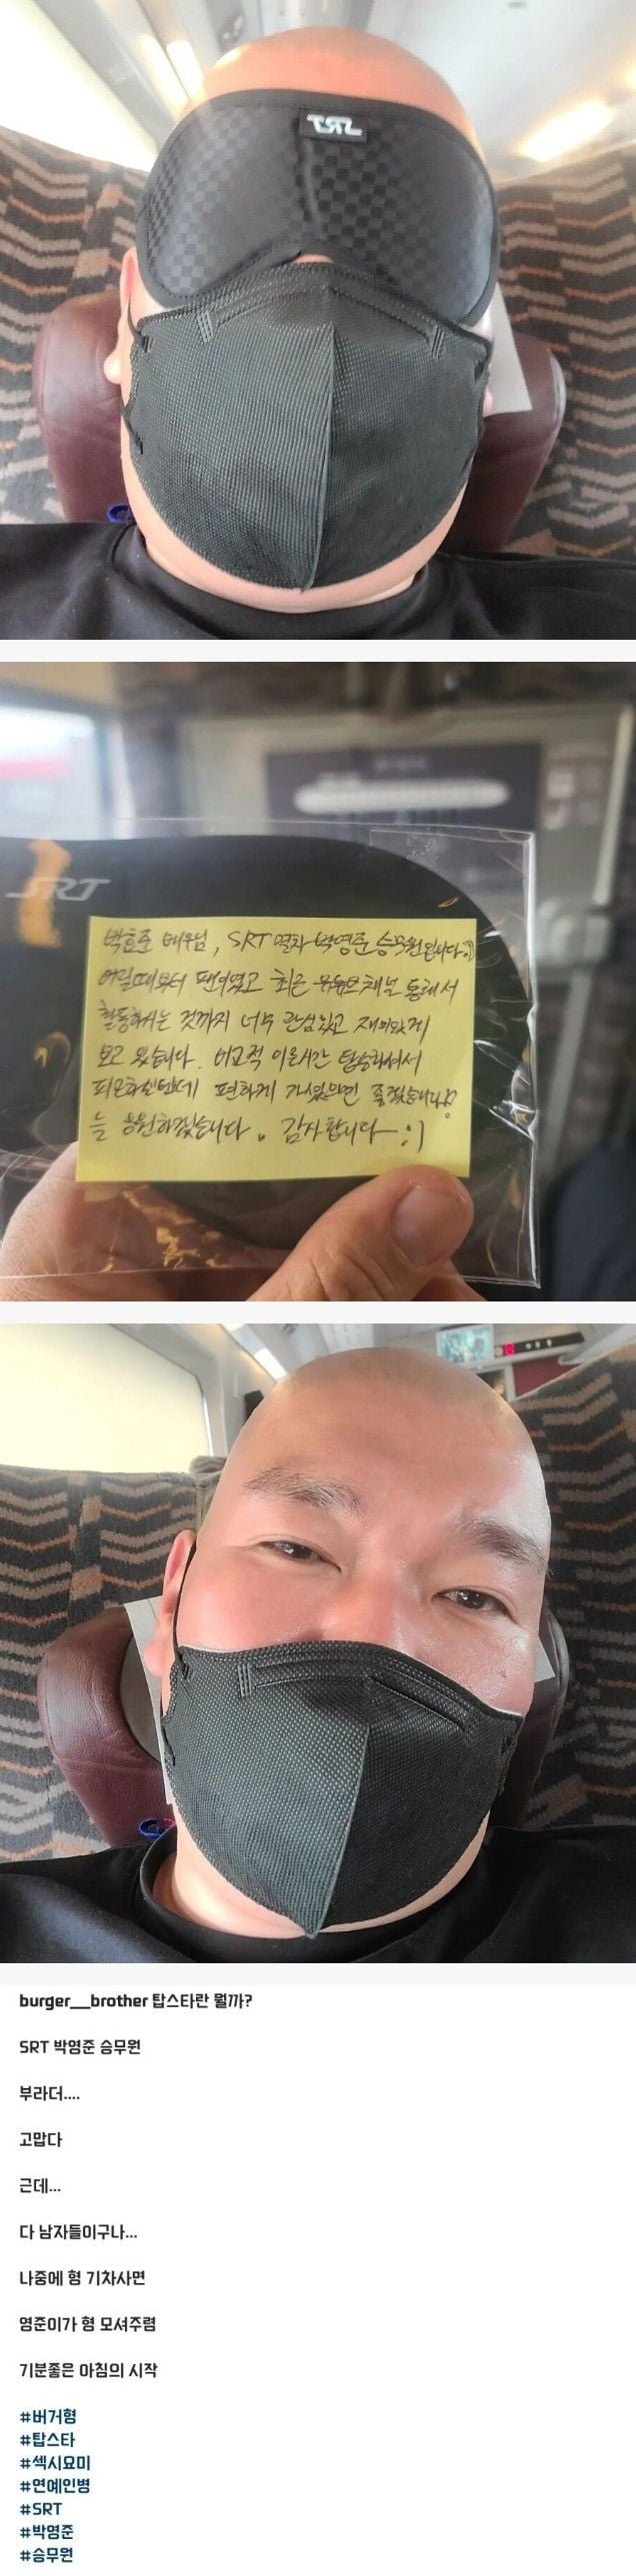 SRT
SRT
박효준 배우님, SRT 열차 박영준 승무원입니다
어릴때부터 팬이였고 최근 유튜브 채널 통해서
활동하시는 것까지 너무 관심있고 재미있게
보고 있습니다. 비교적 이른시간 탑승하셔서
피곤하실텐데 편하게 가셨으면 좋겠습니다!
늘 응원하겠습니다. 감사합니다 :)
burger__brother 탑스타란 뭘까?
SRT 박영준 승무원
부라더....
고맙다
근데...
다 남자들이구나...
나중에 형 기차사면
영준이가 형 모셔주렴
기분좋은 아침의 시작
#버거형
#탑스타
#섹시요미
#연예인병
#SRT
#박영준
#승무원